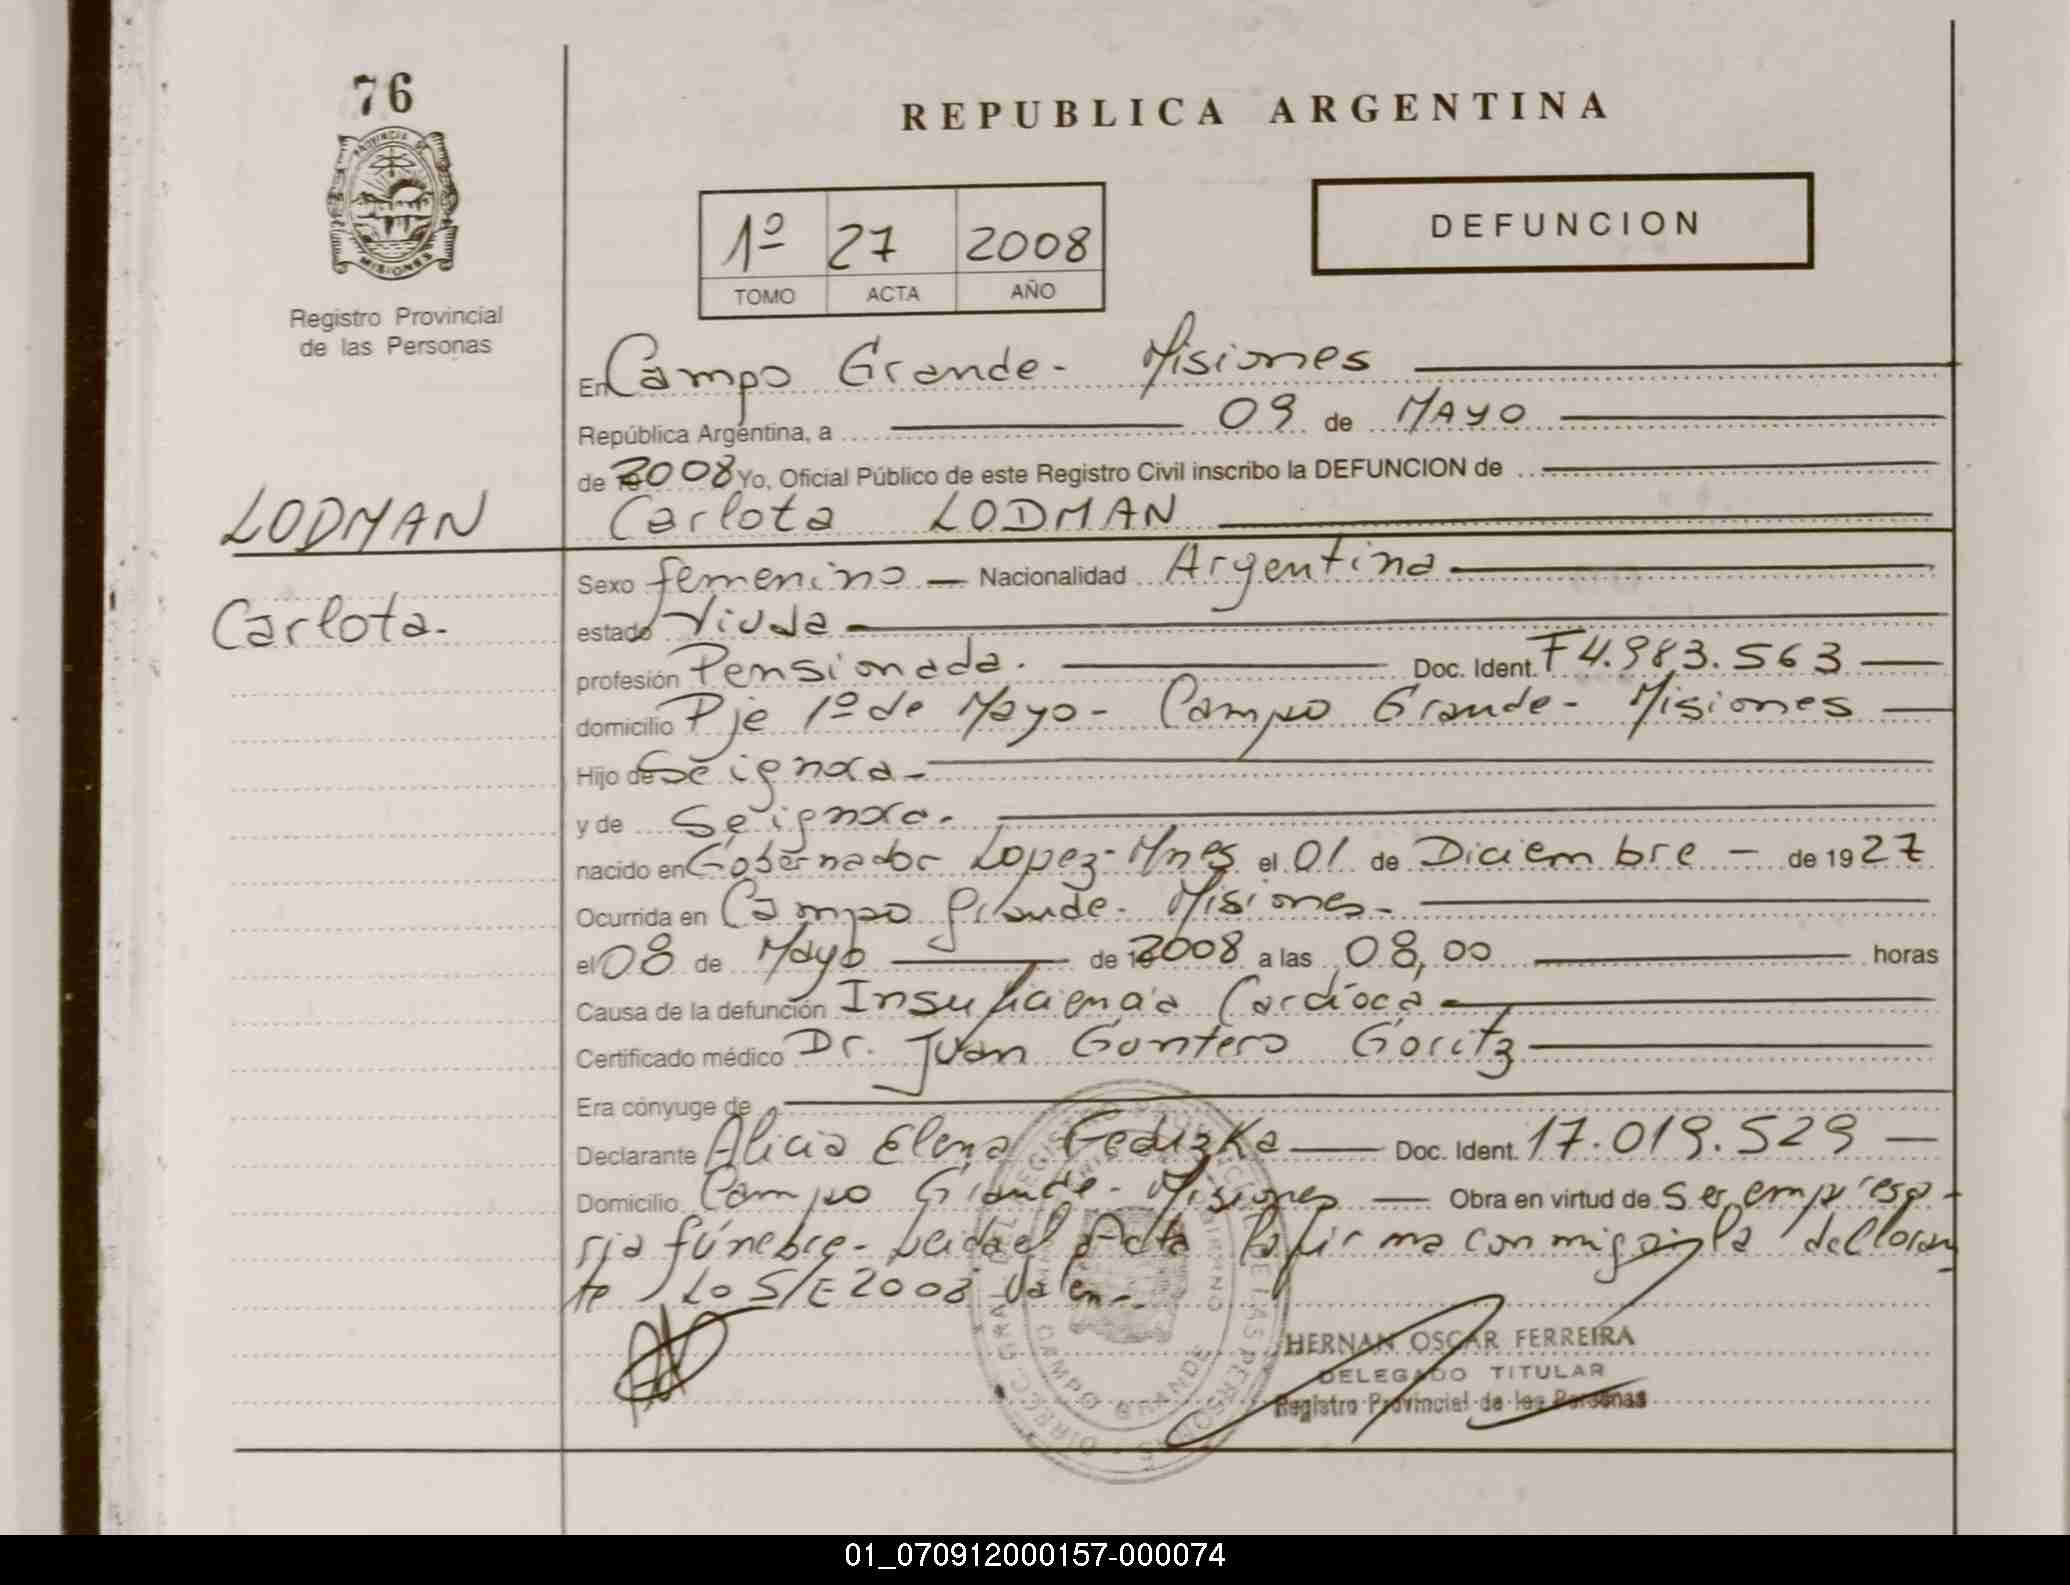 76
PROVINCIA DE
MISIONES
Registro Provincial
de las Personas
REPUBLICA ARGENTINA
1º 27 2008
TOMO ACTA AÑO
DEFUNCION
En Campo Grande - Misiones
República Argentina, a 09 de MAYO
de 2008 Yo, Oficial Público de este Registro Civil inscribo la DEFUNCION de
LODMAN
Carlota LODMAN
Carlota.
Sexo femenino - Nacionalidad Argentina
estado Viuda
profesión Pensionada. Doc. Ident. F 4.983.563
domicilio Pje 1º de Mayo - Campo Grande - Misiones
Hijo de Se ignora
y de Se ignora.
nacido en Gobernador Lopez - Mnes el 01 de Diciembre - de 1927
Ocurrida en Campo Grande - Misiones -
el 08 de Mayo de 2008 a las 08,00 horas
Causa de la defunción Insuficiencia Cardíaca
Certificado médico Dr. Juan Gontero Goritz
Era cónyuge de
Declarante Alicia Elena Doc. Ident. 17.019.529
Domicilio Campo Grande - Misiones Obra en virtud de Ser empresa-
ria fúnebre - Leida el Acta la firma conmigo la declaran
te Lo S/E 2008 Valen -
HERNAN OSCAR FERREIRA
DELEGADO TITULAR
Registro Provincial de las Personas
CAMPO GRANDE
01_070912000157-000074